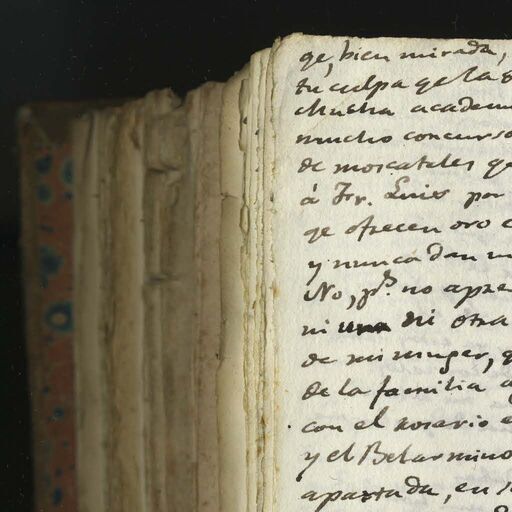 qe, bien mirada,
tu culpa qe la
chucha academ
mucho concurso
de moscateles qe
á Fr. Luis por
qe ofrecen oro
y nunca dan
No, no apre
ni una ni otra
de mi muger,
de la familia
con el rosario
y el Belarmino
apartada, en